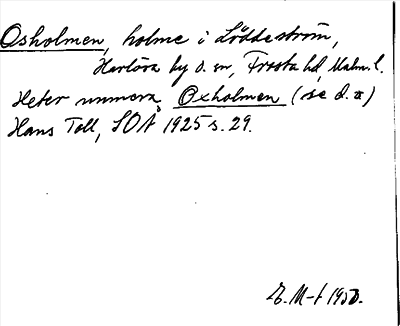 Osholmen, holme i Löddeström,
Harlösa by o. sn, Frosta hd, Malm. l.
Heter numera Oxholmen (se d. o)
Hans Toll, SOÅ 1925 s. 29.
E. M-t 1950.